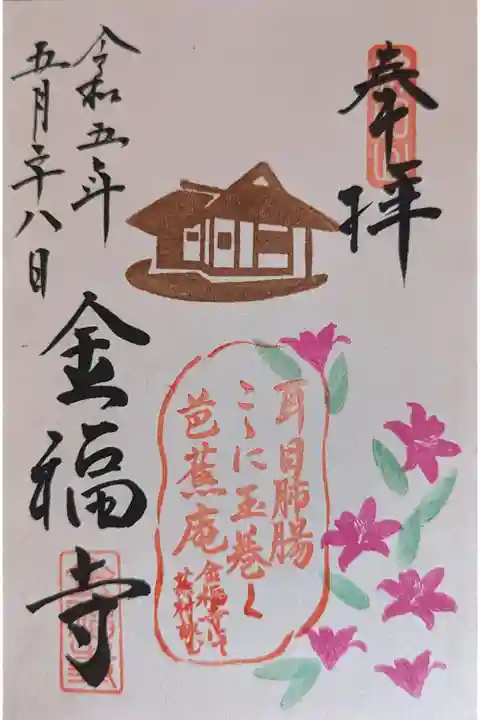 奉拝
耳目肺腸
こゝに玉巻く
芭蕉庵
金福寺
蕪村
令和五年
五月二十八日
金福寺